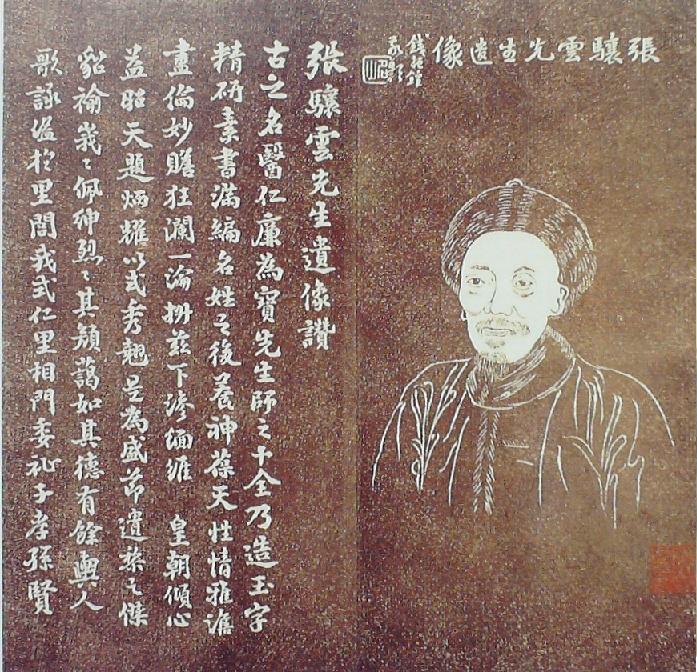 張驤雲先生遺像
張驤雲先生遺像讚
古之名醫仁廉為寶先生師之十全乃造玉字
精研素書滿編名姓之後養神葆天性情雅澹
倫妙狂瀾一茲下緬維 皇朝傾心
益昭天題炳耀以式秀翹是為盛節遺榮之傑
佩紳烈〻其貌藹如其德有餘輿人
歌詠溢於里閭我式仁里相門委祉子孝孫賢